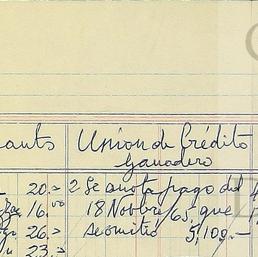 auto Union de Crédito
Ganadero
20.= 2 Se anota pago del
16.00 18 Novbre/63, que
26.= se omitió 5,109.—
23.=